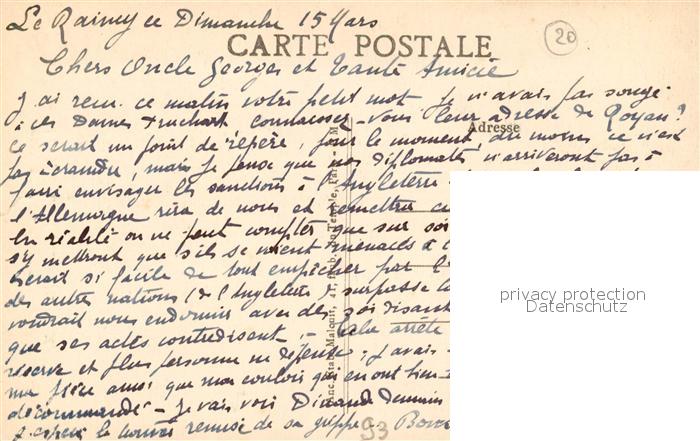 Le Raincy ce Dimanche 15 Mars
CARTE POSTALE
20
Chers Oncle Georges et Tante Amicie
J'ai reçu ce matin votre petit mot. Je n'avais pas songé
à ces Dames Truchart connaissez-vous leur adresse de Royan?
Adresse
Ce serait un point de repère, pour le moment, du moins ce n'est
pas à craindre, mais je pense que nos diplomates n'arriveront pas à
faire envisager les sanctions à l'Angleterre
l'Allemagne rira de nous et remettra
En réalité on ne peut compter que sur soi
s'y mettront que s'ils se voient menacés à
serait si facile de tout empêcher par l'
des autres nations (de l'Angleterre) surpasse
voudrait nous endormir avec des soi disant
que ses actes contredisent. - Cela arrête
réserve et plus personne ne dépense; j'avais
ma pièce ainsi que mon couloir qui en ont bien
décommandé - Je vais voir Demain
J'espère le trouver remise de sa grippe. Bons
93
privacy protection
Datenschutz